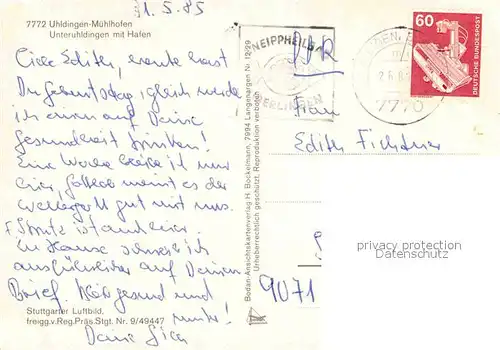 1.5.85
7772 Uhldingen-Mühlhofen
Unteruhldingen mit Hafen
Liebe Edith, heute hast
Du Geburtstag, gleich werde
ich einen auf Deine
Gesundheit trinken!
Eine Woche bleibe ich nur
hier, gottlob meint es der
Wettergott gut mit uns.
ist auch hier.
Zu Hause schreibe ich
ausführlicher auf Deinen
Brief. Bleib gesund und
munter!
Deine
Stuttgarter Luftbild,
freigg.v.Reg.Präs.Stgt. Nr. 9/49447
Bodan-Ansichtskartenverlag H. Bockelmann, 7994 Langenargen Nr. 12/29
Urheberrechtlich geschützt. Reproduktion verboten
KNEIPPHEILBAD
ÜBERLINGEN
DDR
7770
60
DEUTSCHE BUNDESPOST
Frau
Edith Fichtner
9071
privacy protection
Datenschutz